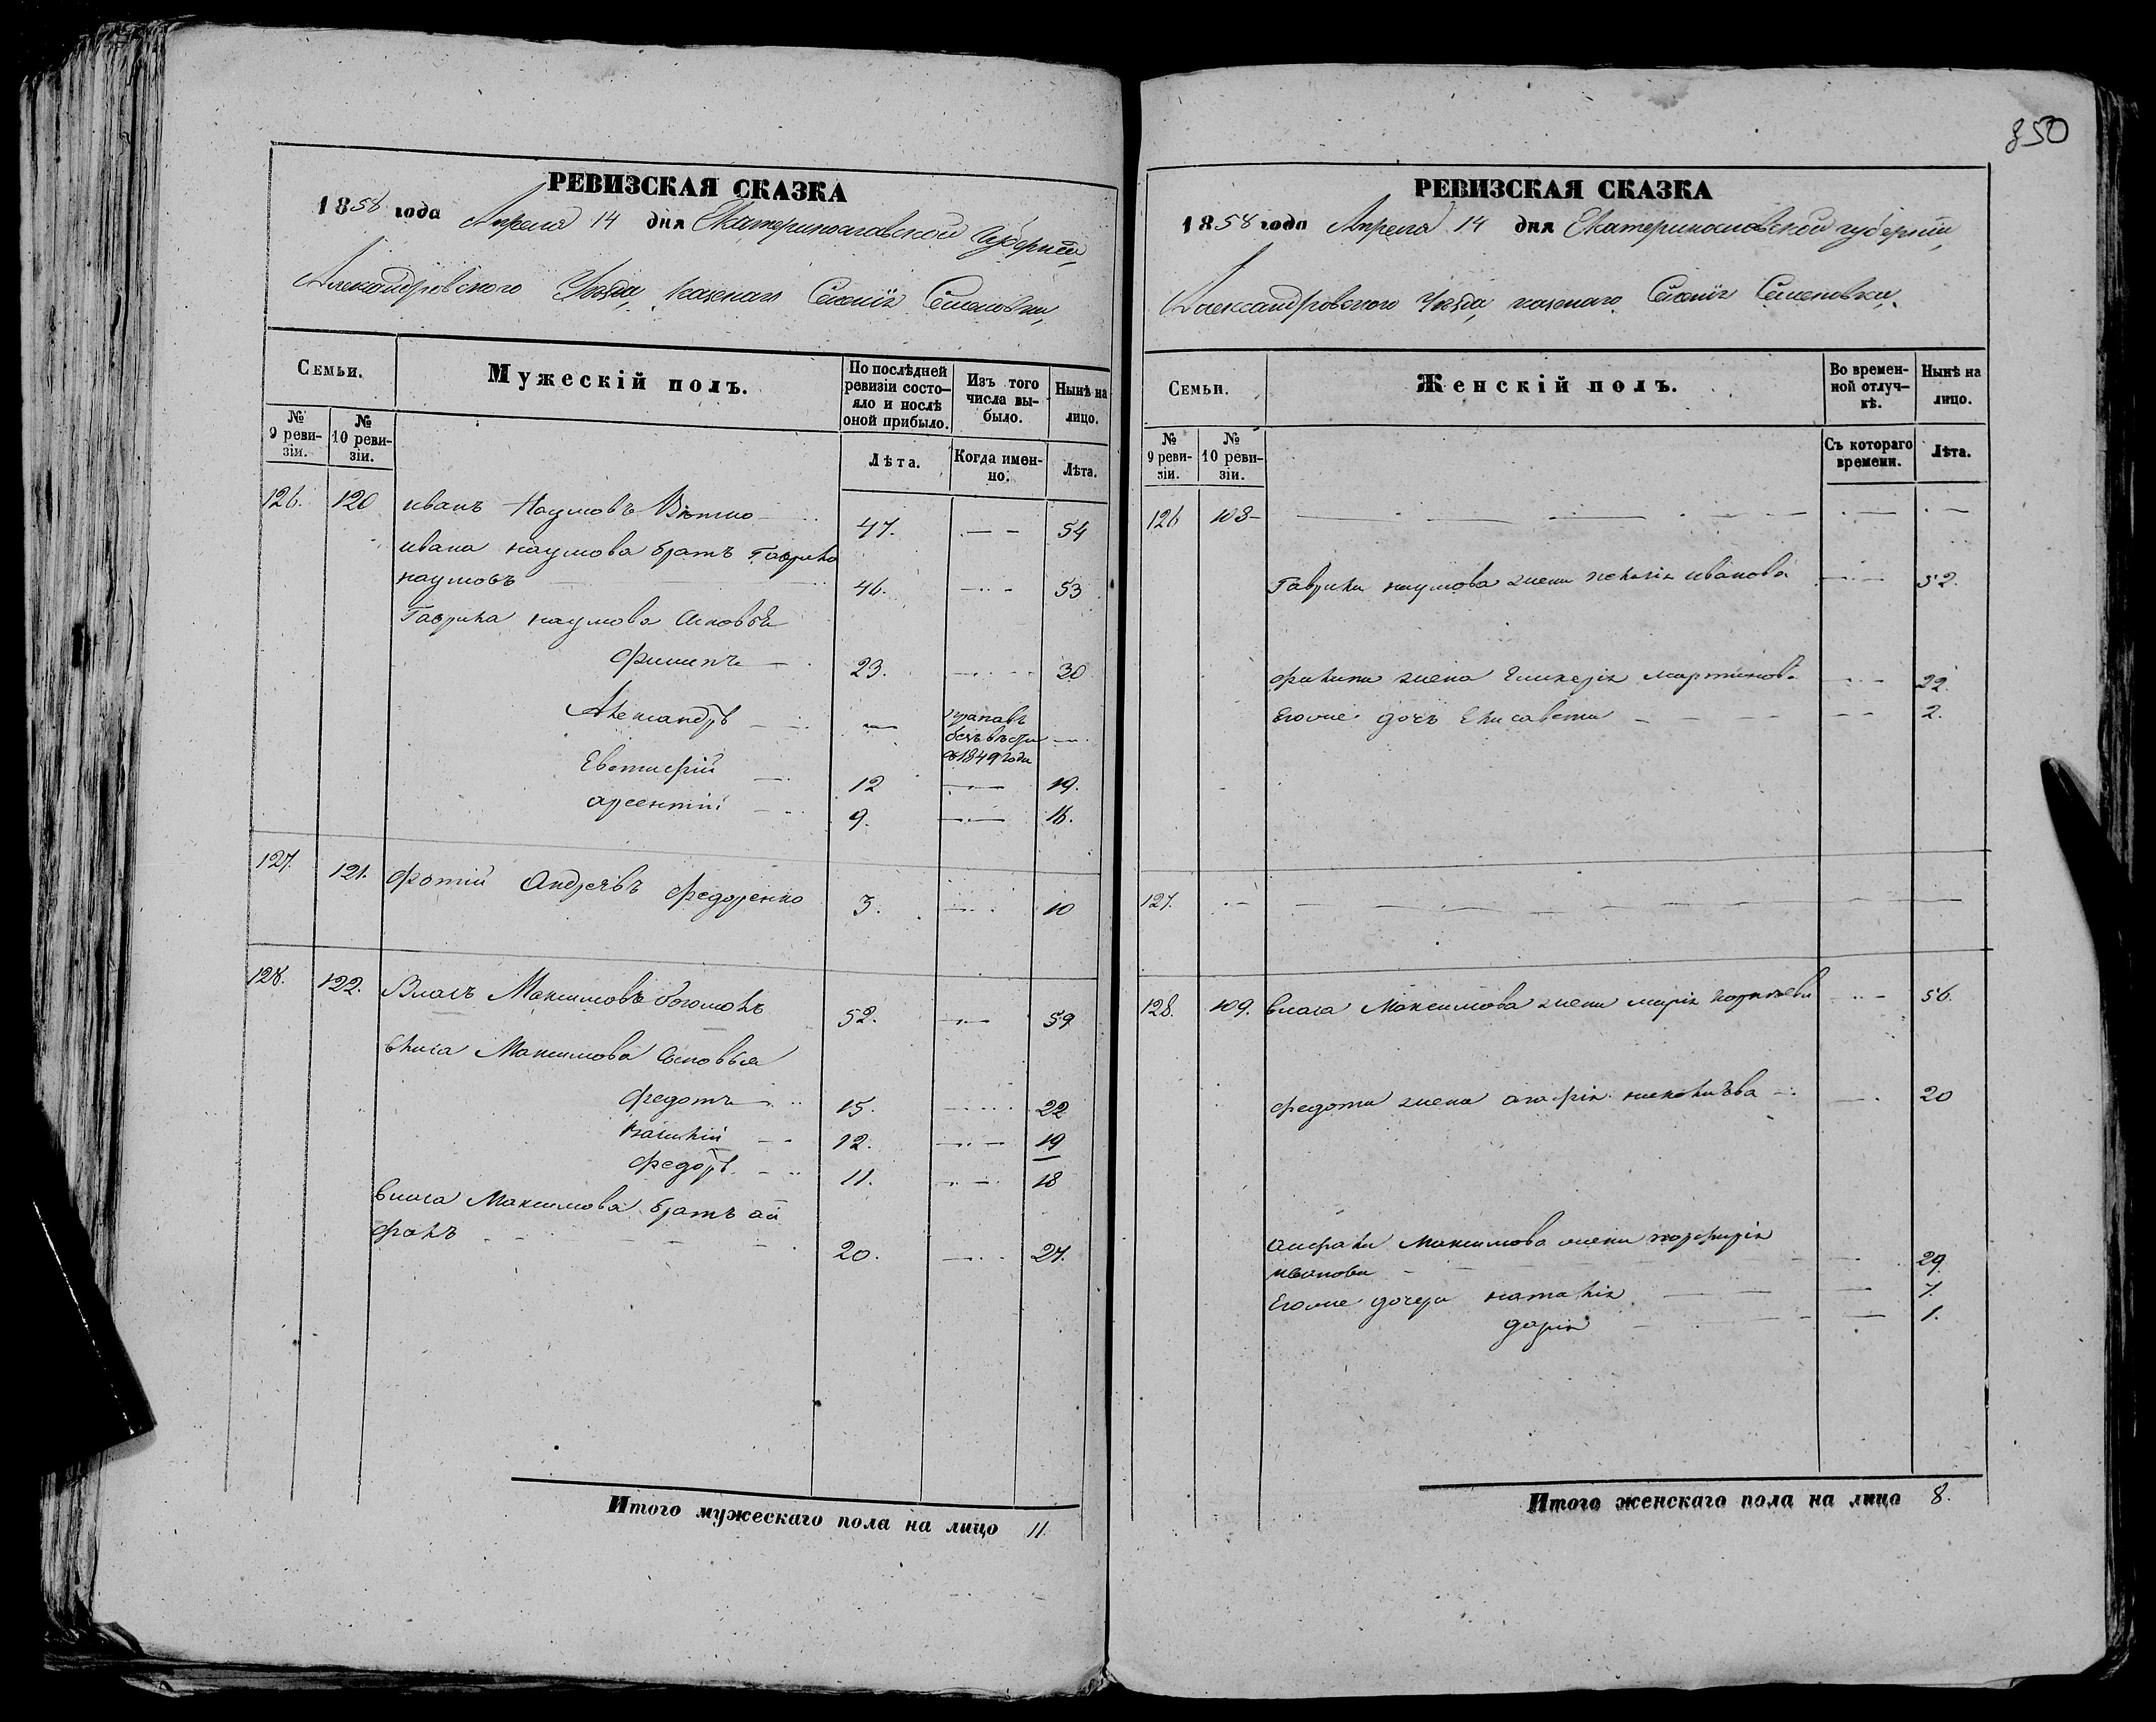 850
РЕВИЗСКАЯ СКАЗКА
1858 года Апреля 14 дня Екатеринославской Губерніи,
Александровского Уезда, казенаго Селенія Семеновки,
Семьи.
Мужескій полъ.
По послѣдней ревизіи состояло и послѣ оной прибыло.
Изъ того числа выбыло.
Нынѣ на лицо.
№ 9 ревизіи.
№ 10 ревизіи.
Лѣта.
Когда именно.
Лѣта.
126. 120 иванъ Наумовъ 47. — 54
ивана наумова братъ Гаврила
наумовъ — 46. — 53
Гаврила наумова сыновья
Филипъ — 23. — 30
Александръ — — пропавъ безъ вѣсти 1849 года —
Евстафій — 12 — 19.
арсентій — 9. — 16.
127. 121. Фотій Андреевъ Федоренко 3. — 10
128. 122. Власъ Максимовъ богомолъ 52. — 59
власа Максимова сыновья
Федотъ — 15. — 22
Василій — 12. — 19
Федоръ — 11. — 18
власа Максимова братъ
20. — 27.
Итого мужескаго пола на лицо 11.
РЕВИЗСКАЯ СКАЗКА
1858 года Апреля 14 дня Екатеринославской губерніи,
Александровского Уезда, казенаго Селенія Семеновки,
Семьи.
Женскій полъ.
Во временной отлучкѣ.
Нынѣ на лицо.
№ 9 ревизіи.
№ 10 ревизіи.
Съ котораго времени.
Лѣта.
126 108 — — —
Гаврила наумова жена иванова — 52.
Филипа жена Гликерія мартинова — 22.
Егоже дочь Елисавета — 2.
127. — — —
128. 109. власа Максимова жена марія — 56.
Федота жена агафія — 20
Максимова жена
иванова — 29.
Егоже дочери наталія — 7.
дарія — 1.
Итого женскаго пола на лицо 8.